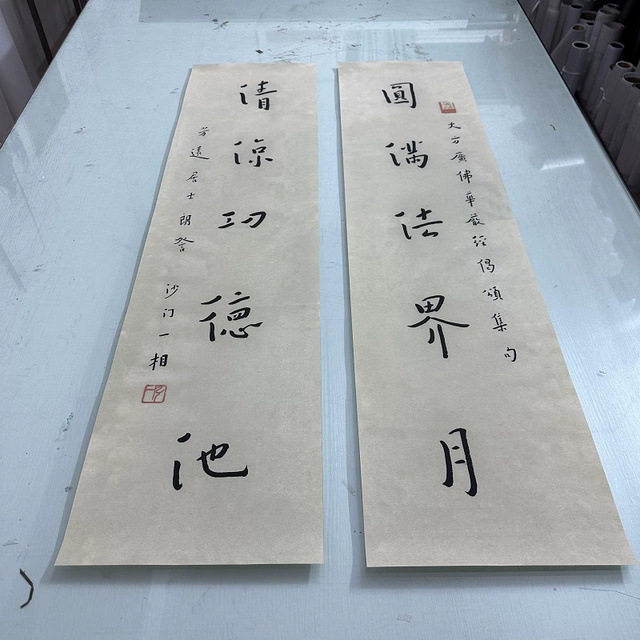 圓滿法界月
大方廣佛華嚴經偈頌集句
清涼功德池
芳遠居士朗詧 沙门一相